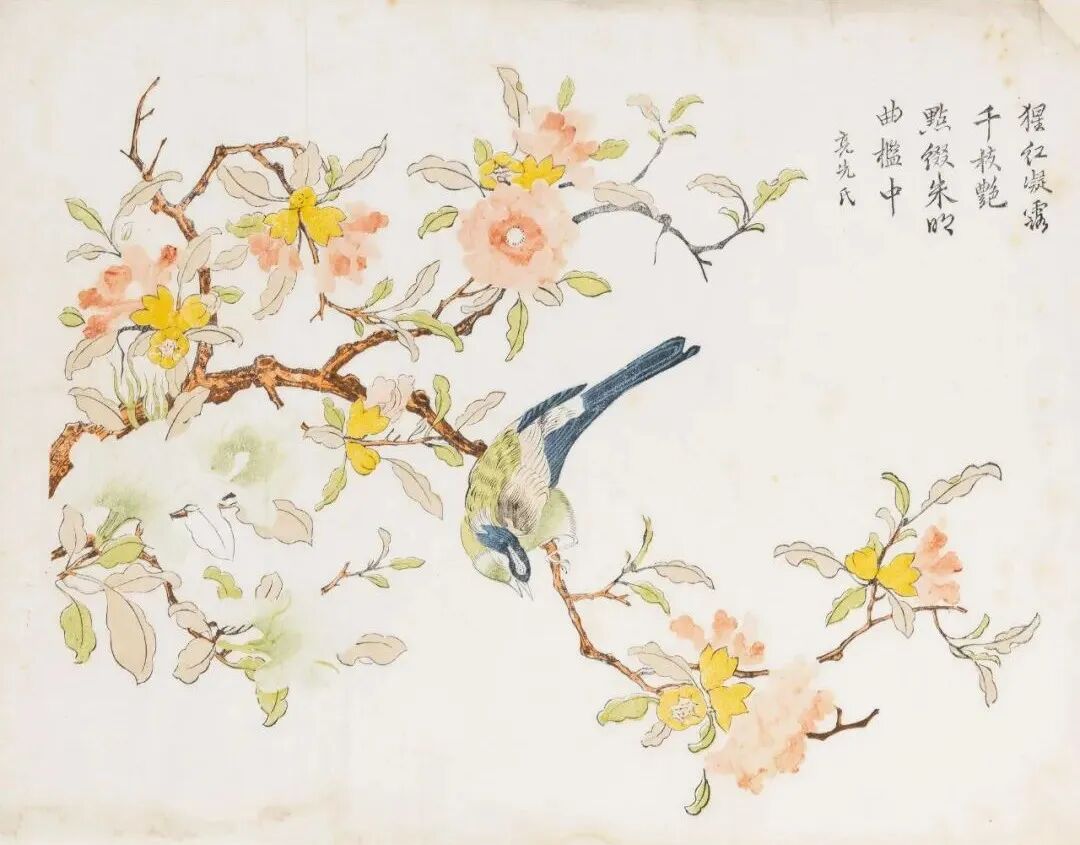 猩红凝露
千枝艷
點綴朱明
曲檻中
亮先氏